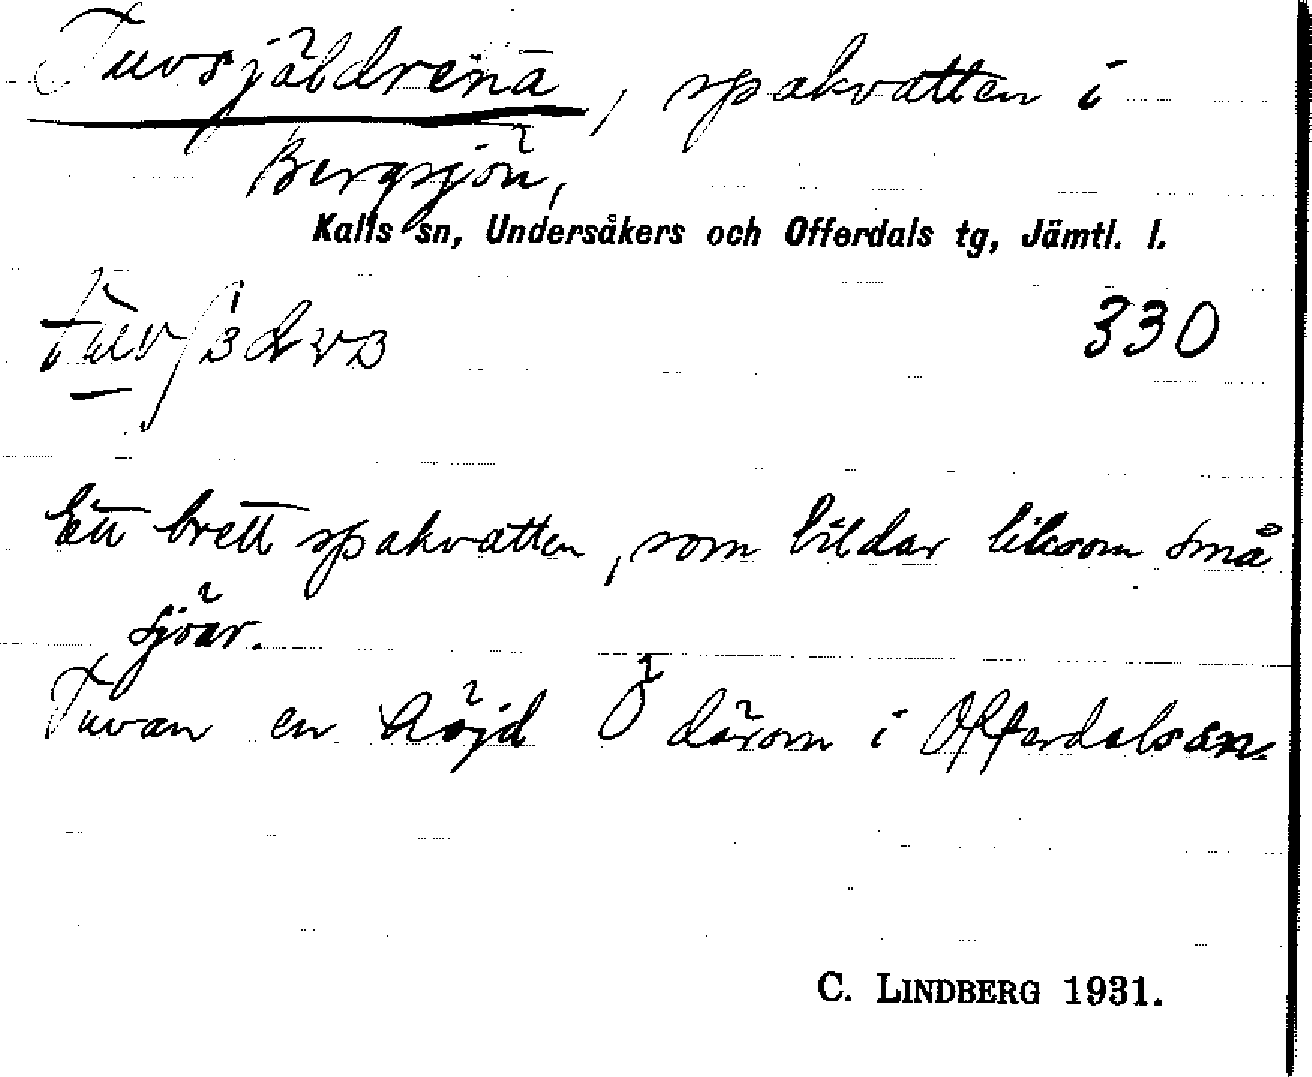 Tuvsjäldrena, spakvatten i
Bergsjön,
Kalls sn, Undersåkers och Offerdals tg, Jämtl. l.
330
Ett brett spakvatten, som bildar liksom små
sjöar.
Tuvan en höjd Ö därom i Offerdalsan.
C. LINDBERG 1931.